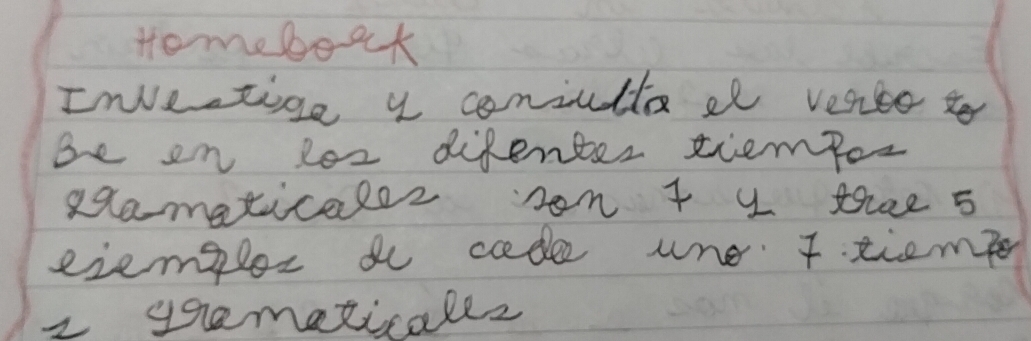 Homebork
Investiga y consulta el verbo to
Be en los difentes tiempos
gramaticales son 7 y trae 5
ejemplos de cada uno. 7 tiempo
s gramaticales